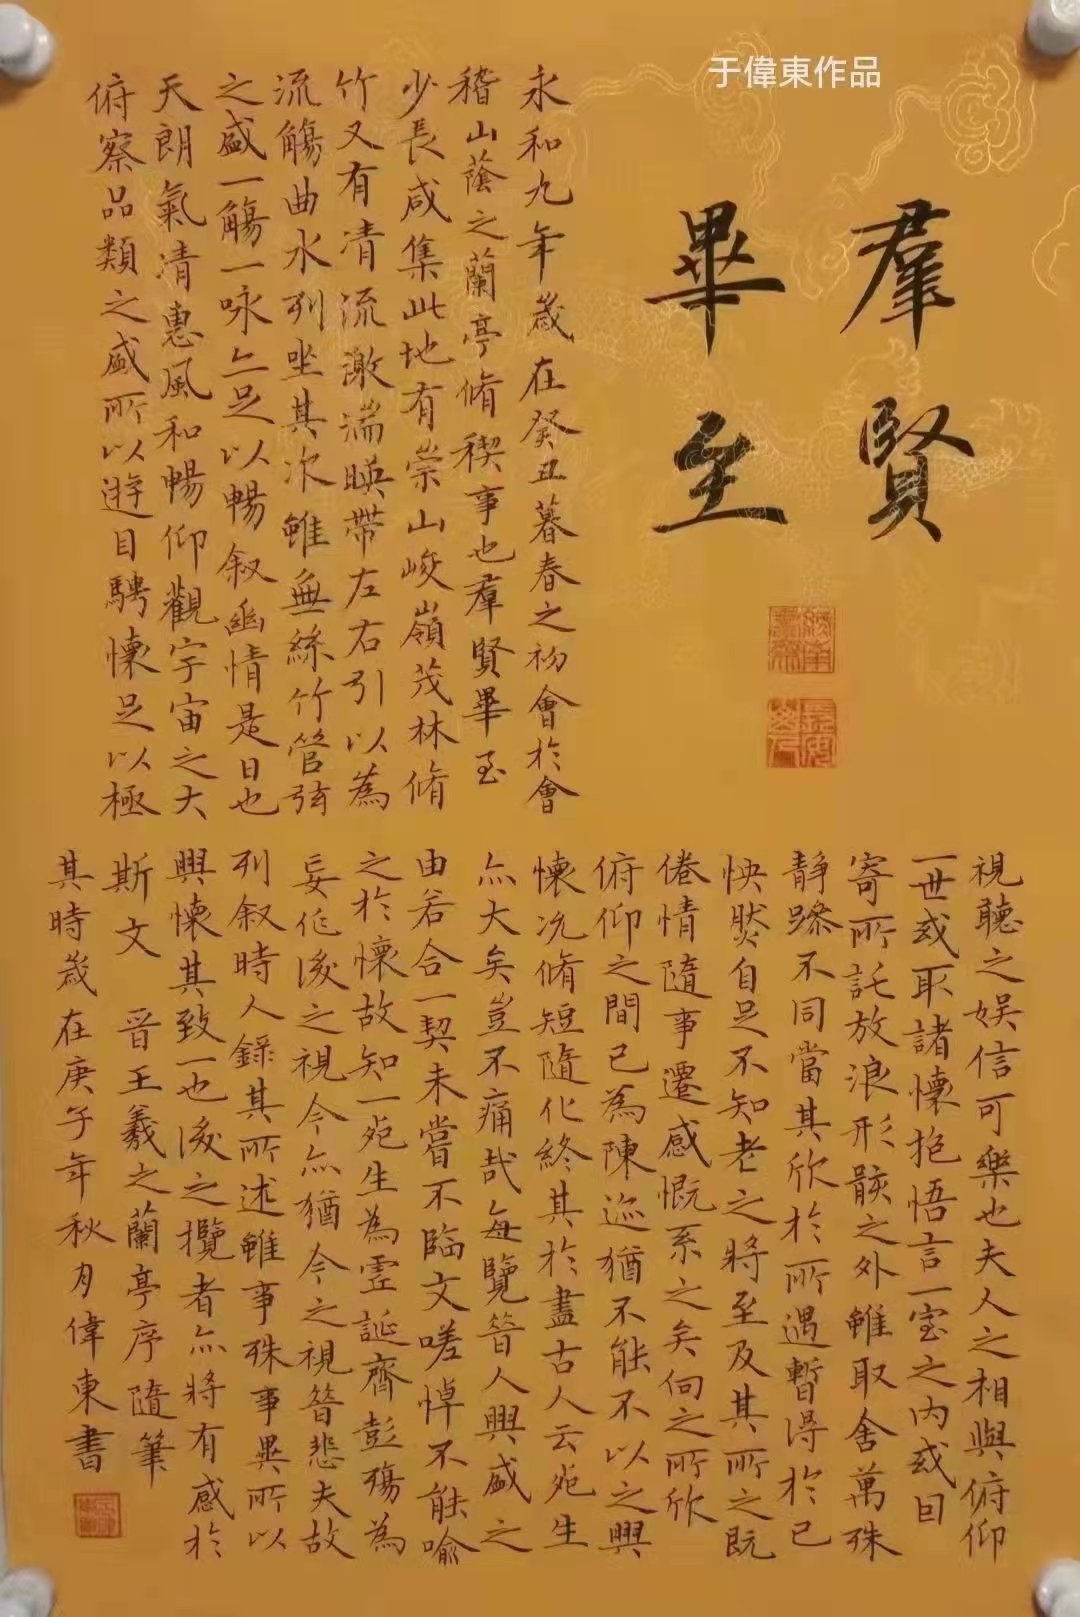 于偉東作品
羣賢
畢至
永和九年歲在癸丑暮春之初會於會
稽山蔭之蘭亭脩稧事也羣賢畢至
少長咸集此地有崇山峻嶺茂林脩
竹又有清流激湍暎帶左右引以為
流觴曲水列坐其次雖無絲竹管弦
之盛一觴一咏亦足以暢叙幽情是日也
天朗氣清惠風和暢仰觀宇宙之大
俯察品類之盛所以遊目騁懷足以極
視聽之娛信可樂也夫人之相與俯仰
一世或取諸懷抱悟言一室之內或因
寄所託放浪形骸之外雖取舍萬殊
靜躁不同當其欣於所遇暫得於己
怏然自足不知老之將至及其所之既
倦情隨事遷感慨系之矣向之所欣
俯仰之間已為陳迹猶不能不以之興
懷況脩短隨化終其於盡古人云死生
亦大矣豈不痛哉每覽昔人興盛之
由若合一契未嘗不臨文嗟悼不能喻
之於懷故知一死生為虛誕齊彭殤為
妄作後之視今亦猶今之視昔悲夫故
列叙時人錄其所述雖事殊事異所以
興懷其致一也後之攬者亦將有感於
斯文 晉王羲之蘭亭序隨筆
其時歲在庚子年秋月偉東書